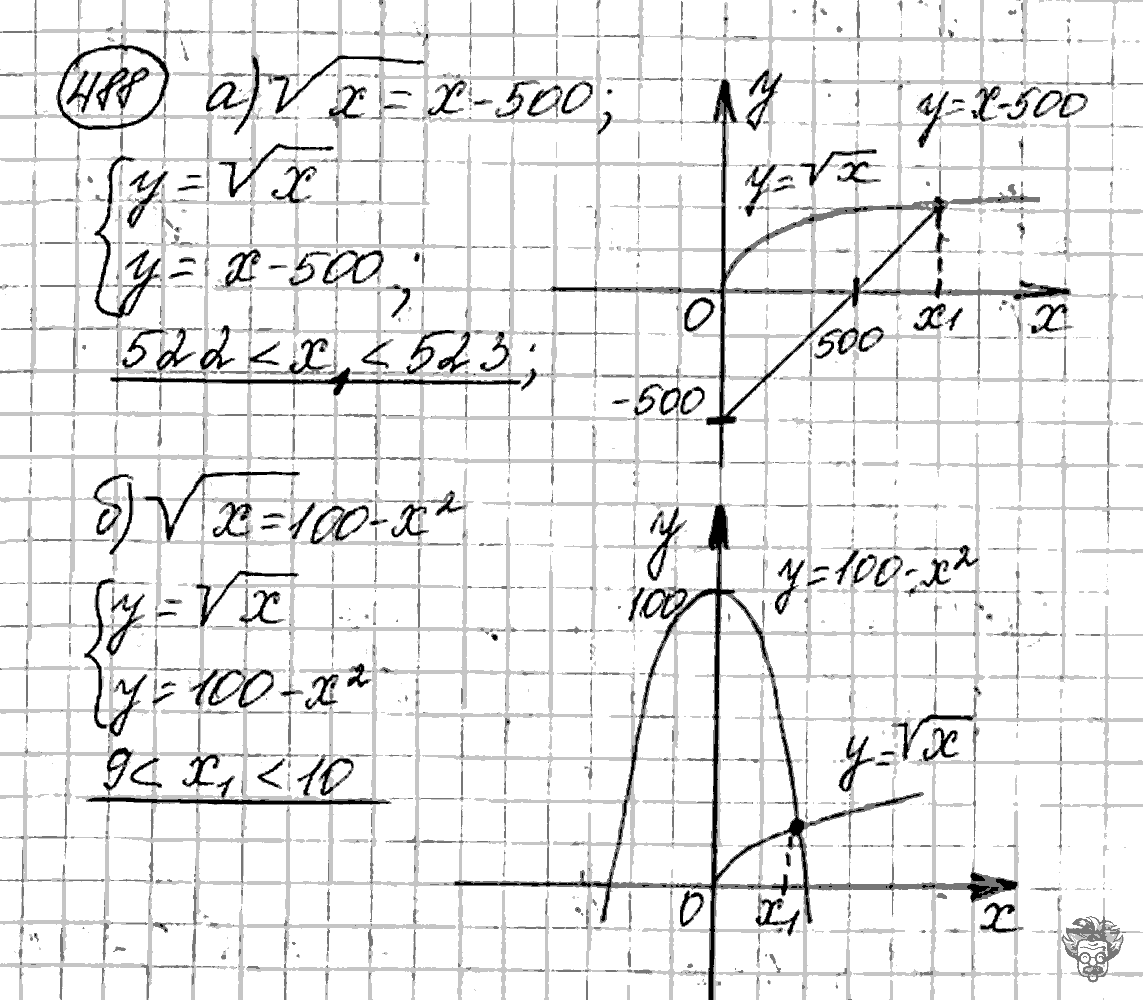 488 а) √x = x - 500;
{ y = √x
y = x - 500;
522 < x₁ < 523;
y
y = x - 500
y = √x
0
500
x₁
x
-500
б) √x = 100 - x²
{ y = √x
y = 100 - x²
9 < x₁ < 10
y
100
y = 100 - x²
y = √x
0
x₁
x